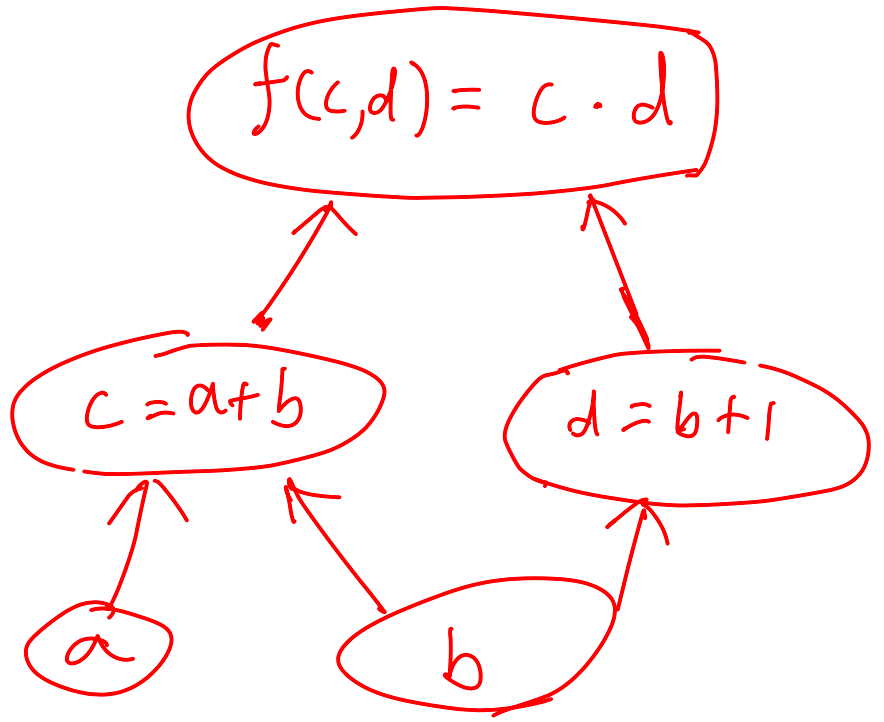 f(c,d) = c · d
c = a + b
d = b + 1
a
b